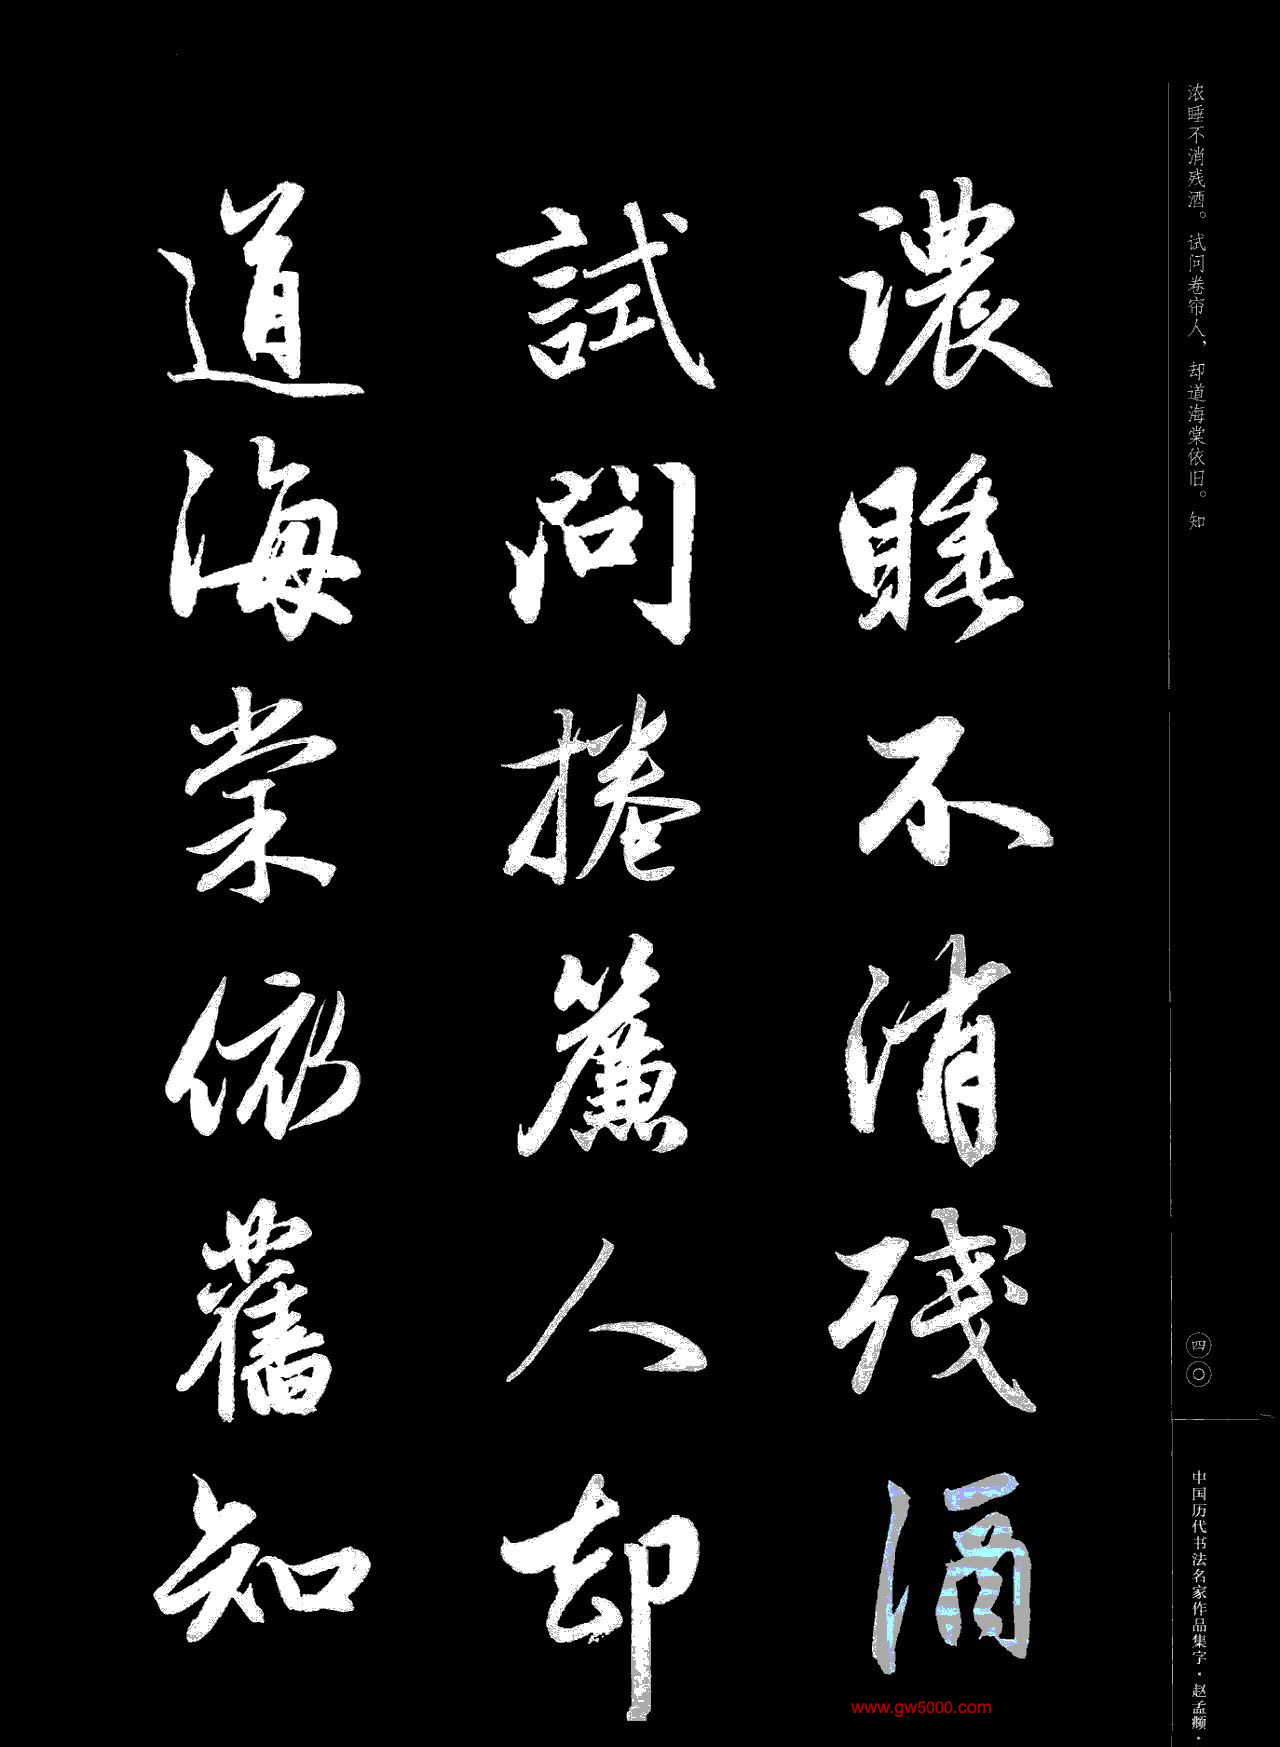 浓睡不消残酒。试问卷帘人，却道海棠依旧。知
濃睡不消殘酒
試問捲簾人却
道海棠依舊知
四〇
中国历代书法名家作品集字·赵孟頫·
www.gw5000.com